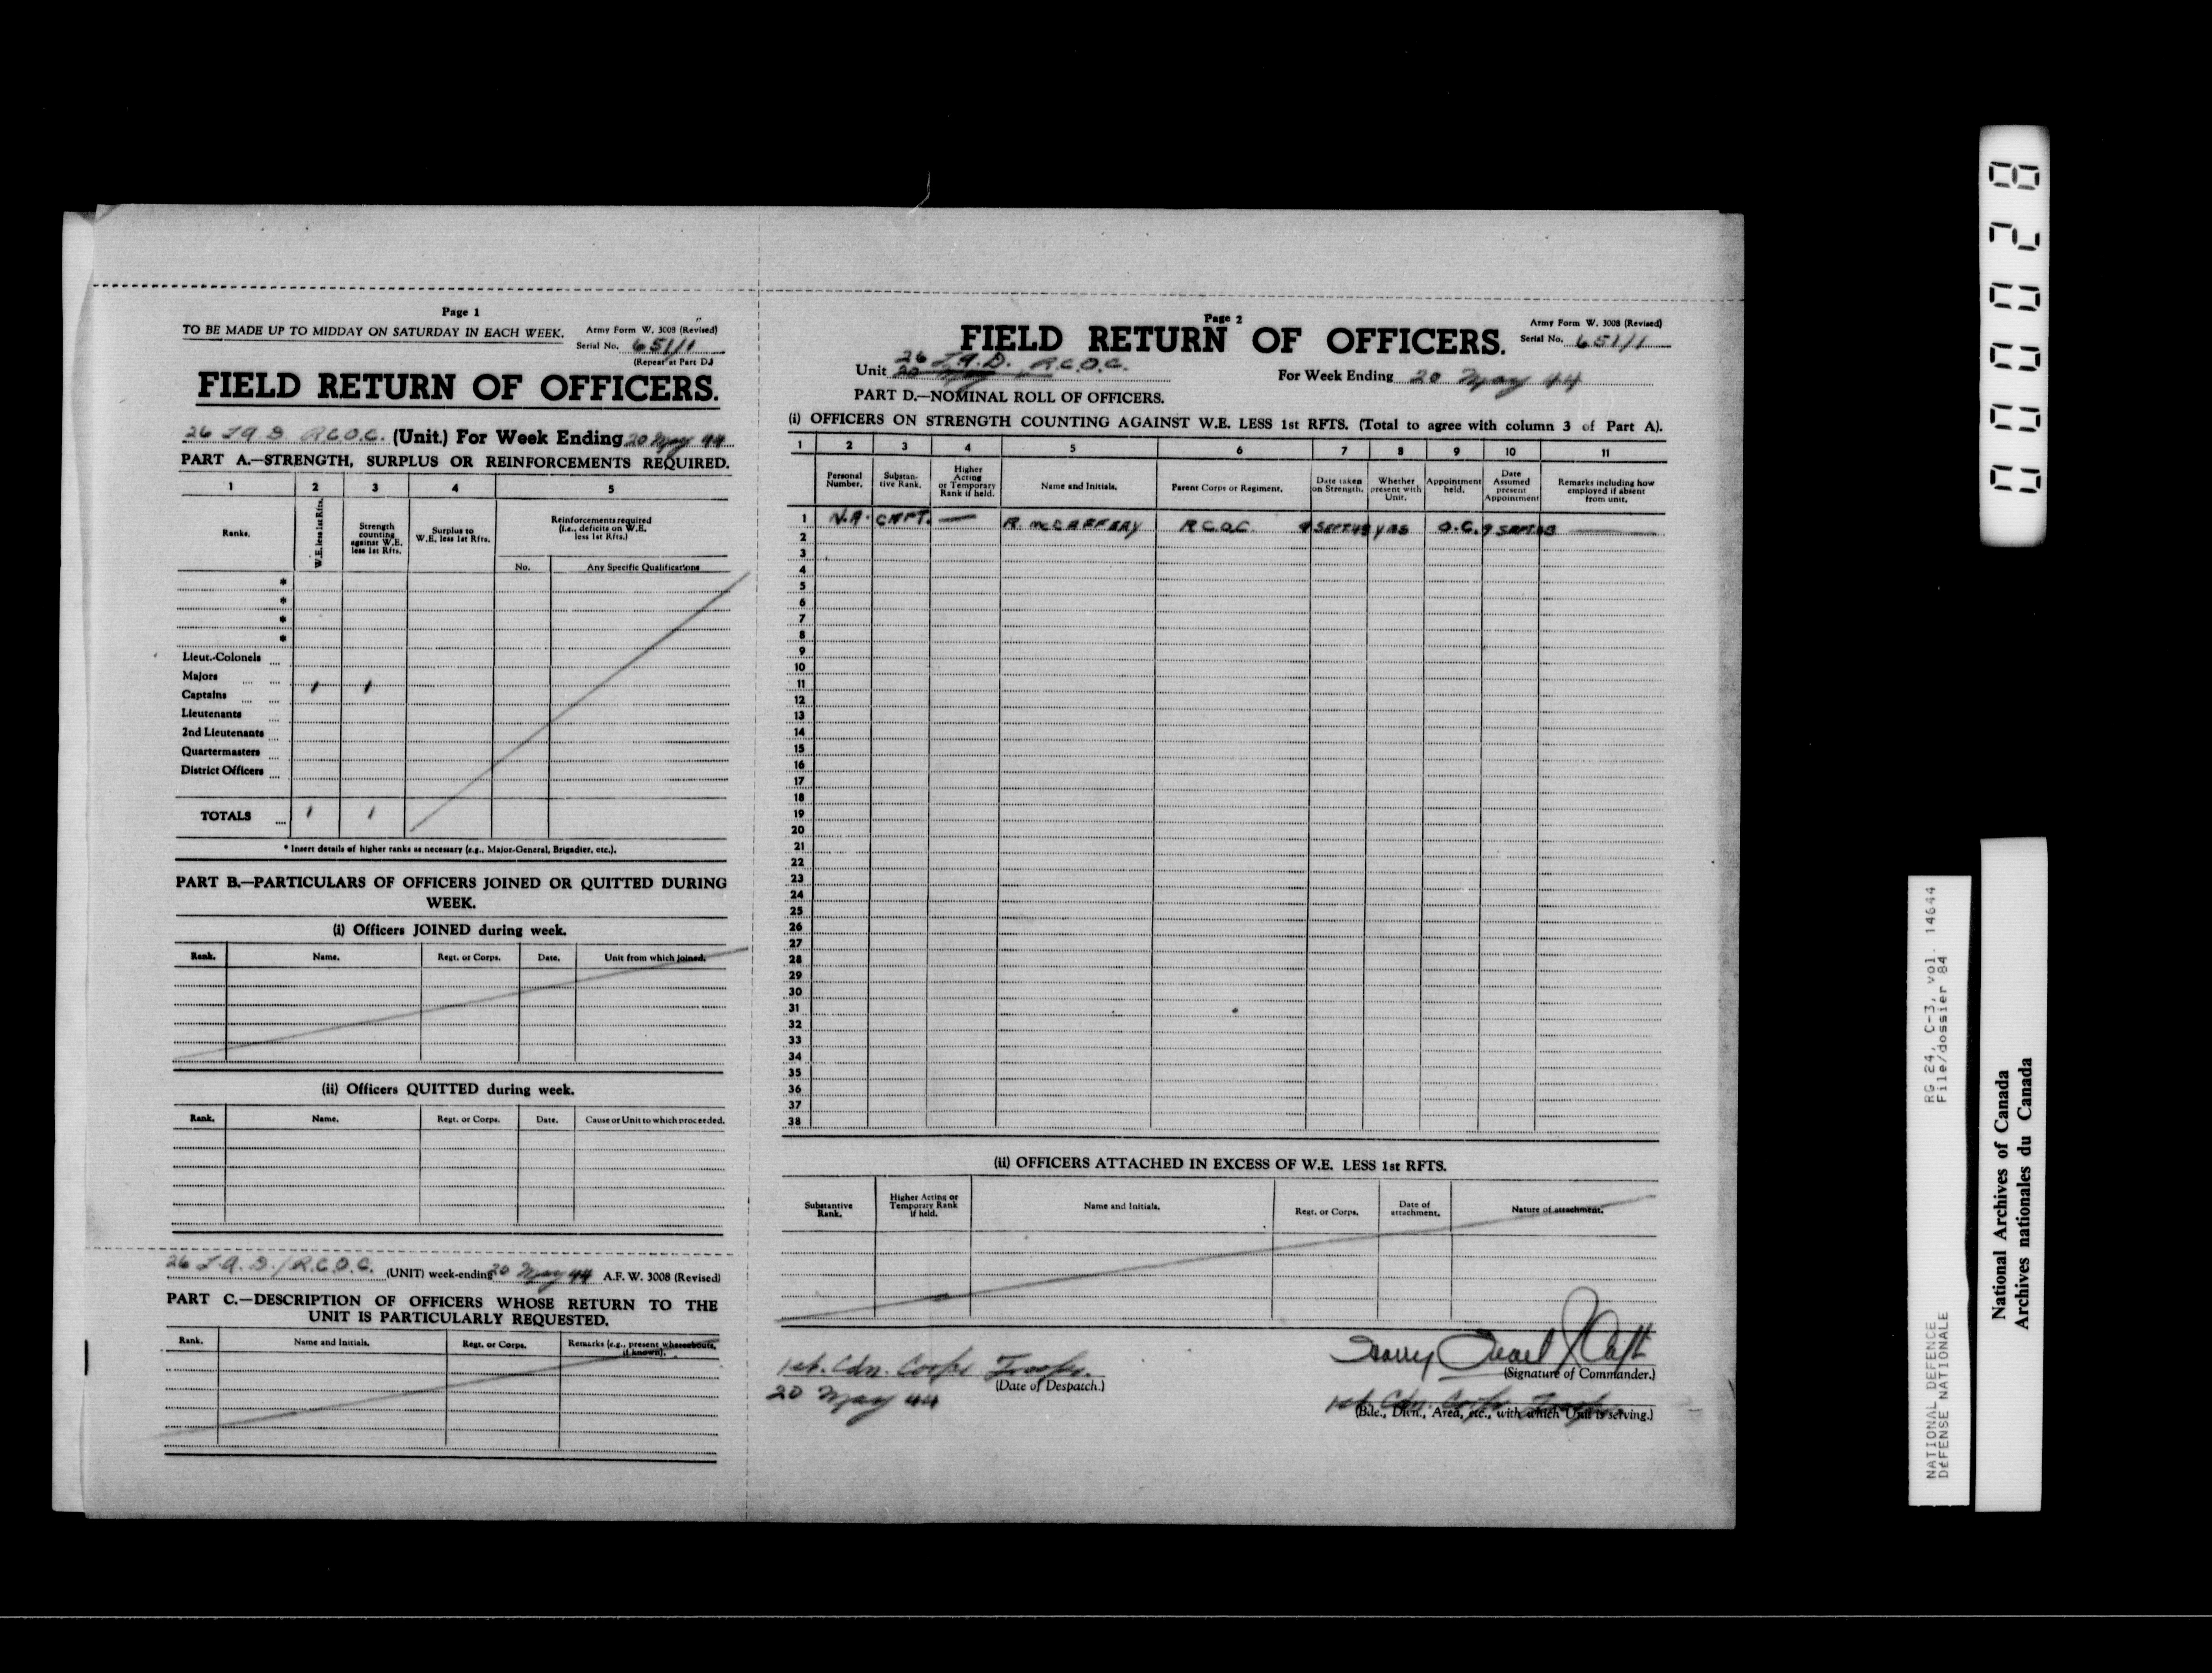 Page 1
TO BE MADE UP TO MIDDAY ON SATURDAY IN EACH WEEK.
Army Form W. 3008 (Revised)
Serial No. 651/1
(Repeat at Part D.)
FIELD RETURN OF OFFICERS.
26 L A D R.C.O.C. (Unit.) For Week Ending 20 May 44
PART A.—STRENGTH, SURPLUS OR REINFORCEMENTS REQUIRED.
1 2 3 4 5
Ranks.
W.E. less 1st Rfts.
Strength counting against W.E. less 1st Rfts.
Surplus to W.E. less 1st Rfts.
Reinforcements required (i.e., deficits on W.E. less 1st Rfts.)
No.
Any Specific Qualifications
*
*
*
*
Lieut.-Colonels ....
Majors .... ....
Captains .... .... 1 1
Lieutenants ....
2nd Lieutenants ....
Quartermasters ....
District Officers ....
TOTALS .... 1 1
* Insert details of higher ranks as necessary (e.g., Major-General, Brigadier, etc.).
PART B.—PARTICULARS OF OFFICERS JOINED OR QUITTED DURING
WEEK.
(i) Officers JOINED during week.
Rank. Name. Regt. or Corps. Date. Unit from which joined.
(ii) Officers QUITTED during week.
Rank. Name. Regt. or Corps. Date. Cause or Unit to which proceeded.
26 L.A.D./R.C.O.C. (UNIT) week-ending 20 May 44 A.F.W. 3008 (Revised)
PART C.—DESCRIPTION OF OFFICERS WHOSE RETURN TO THE
UNIT IS PARTICULARLY REQUESTED.
Rank. Name and Initials. Regt. or Corps. Remarks (e.g., present whereabouts, if known).
Page 2
FIELD RETURN OF OFFICERS.
Army Form W. 3008 (Revised)
Serial No. 651/1
Unit 26 L.A.D. R.C.O.C.
For Week Ending 20 May 44
PART D.—NOMINAL ROLL OF OFFICERS.
(i) OFFICERS ON STRENGTH COUNTING AGAINST W.E. LESS 1st RFTS. (Total to agree with column 3 of Part A).
1 2 3 4 5 6 7 8 9 10 11
Personal Number.
Substantive Rank.
Higher Acting or Temporary Rank if held.
Name and Initials.
Parent Corps or Regiment.
Date taken on Strength.
Whether present with Unit.
Appointment held.
Date Assumed present Appointment
Remarks including how employed if absent from unit.
1 N.A. CAPT. — R. McCAFFERY R.C.O.C. 9 SEPT 43 yes O.C. 9 SEPT 43 —
2
3
4
5
6
7
8
9
10
11
12
13
14
15
16
17
18
19
20
21
22
23
24
25
26
27
28
29
30
31
32
33
34
35
36
37
38
(ii) OFFICERS ATTACHED IN EXCESS OF W.E. LESS 1st RFTS.
Substantive Rank. Higher Acting or Temporary Rank if held. Name and Initials. Regt. or Corps. Date of attachment. Nature of attachment.
1st. Cdn. Corps Troops.
(Date of Despatch.)
20 May 44
Capt
(Signature of Commander.)
1st. Cdn. Corps Troops
(Bde., Divn., Area, etc., with which Unit is serving.)
00028
RG 24, C-3, vol. 14644
File/dossier 84
NATIONAL DEFENCE
DÉFENSE NATIONALE
National Archives of Canada
Archives nationales du Canada